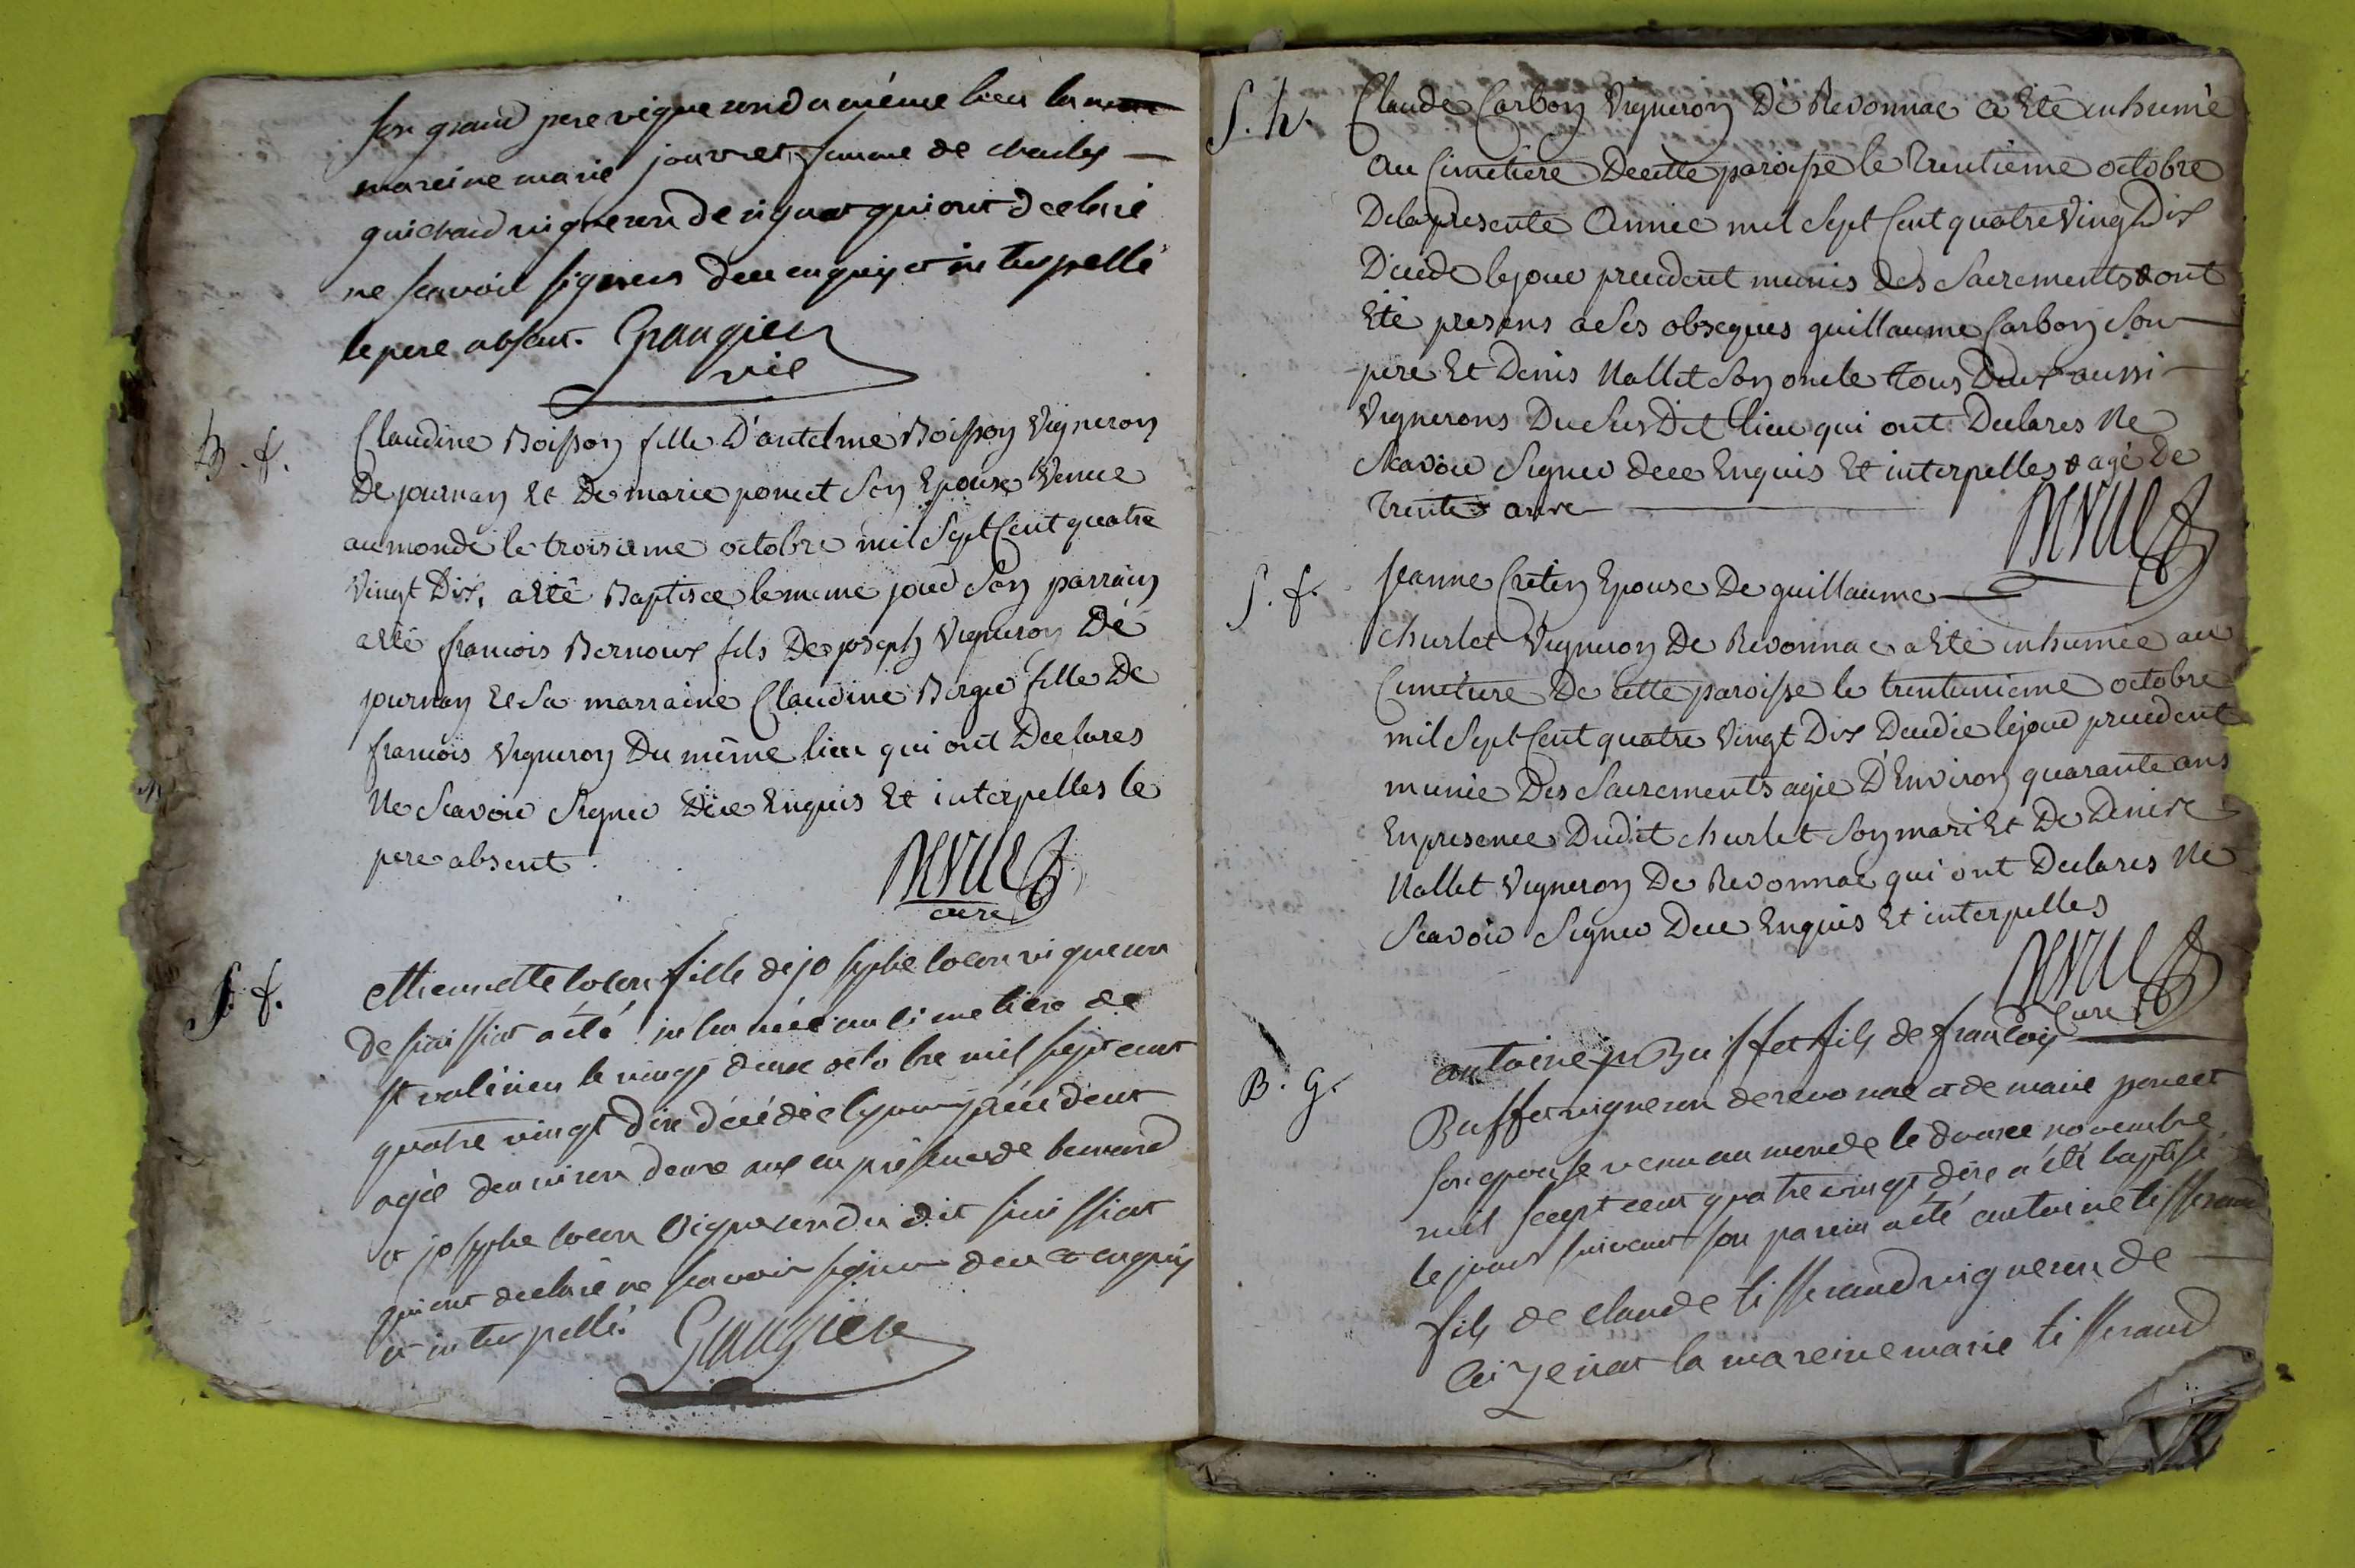 son grand pere vigneron du même lieu la
mareine marie jouvret femme de charles
guichard vigneron de rignat qui ont declaré
ne scavoir signer deu enquis et interpellé
le pere absent. Grangier
vic
B. f.
Claudine Boisson fille D'antelme Boisson Vigneron
De journan Et De marie poncet Son Epouse Venue
au monde le troisieme octobre mil Sept Cent quatre
Vingt Dix, a Eté Baptisee le meme jour Son parrain
a Eté francois Bernoux fils De joseph Vigneron De
journan Et Sa marraine Claudine Berger fille De
francois Vigneron Du même lieu qui ont Declares
Ne Scavoir Signer Dee Enquis Et interpelles le
pere absent.
curé
S. f.
ettiennette locon fille de josephe locon vigneron
de sanssiat a été inhumée au cimetiere de
st valérien le vingt deux octobre mil sept cent
quatre vingt dix décédée le jour précédent
agée denviron deux ans en présence de bernard
et josephe locon vigneron du dit
qui ont declaré ne scavoir signer deu et enquis
et interpellé. Grangier
S. h.
Claude Carbon Vigneron De Revonnac a Eté inhumé
au Cimetiere De cette paroisse le Trentieme octobre
De la presente Année mil Sept Cent quatre Vingt Dix
Decede le jour precedent munis des Sacrements & ont
Eté presens a Ses obseques guillaume Carbon Son
pere Et Denis Nallet Son oncle tous Deux aussi
Vignerons Du Sus Dit lieu qui ont Declares Ne
Scavoir Signer dee Enquis Et interpelles & agé De
trente ans
S. f.
Jeanne Cretin Epouse De guillaume
Churlet Vigneron De Revonnac a Eté inhumée au
Cimetiere De cette paroisse le trentunieme octobre
mil Sept Cent quatre Vingt Dix Decedie le jour precedent
munie Des Sacrements agie D'Environ quarante ans
En presence Dudit churlet Son mari Et De Denise
Nallet Vigneron De Revonnac qui ont Declares Ne
Scavoir Signer Dee Enquis Et interpelles
Curé
B. g.
antoine Buffet fils de francois
Buffet vigneron de revonac et de marie poncet
son epouse venu au monde le douze novembre
mil scept cent quatre vingt dixe a été baptisé
le jour suivant son parain a été antoine tisserand
fils de claude tisserand vigneron de
Ceizeriat la mareine marie tisserand